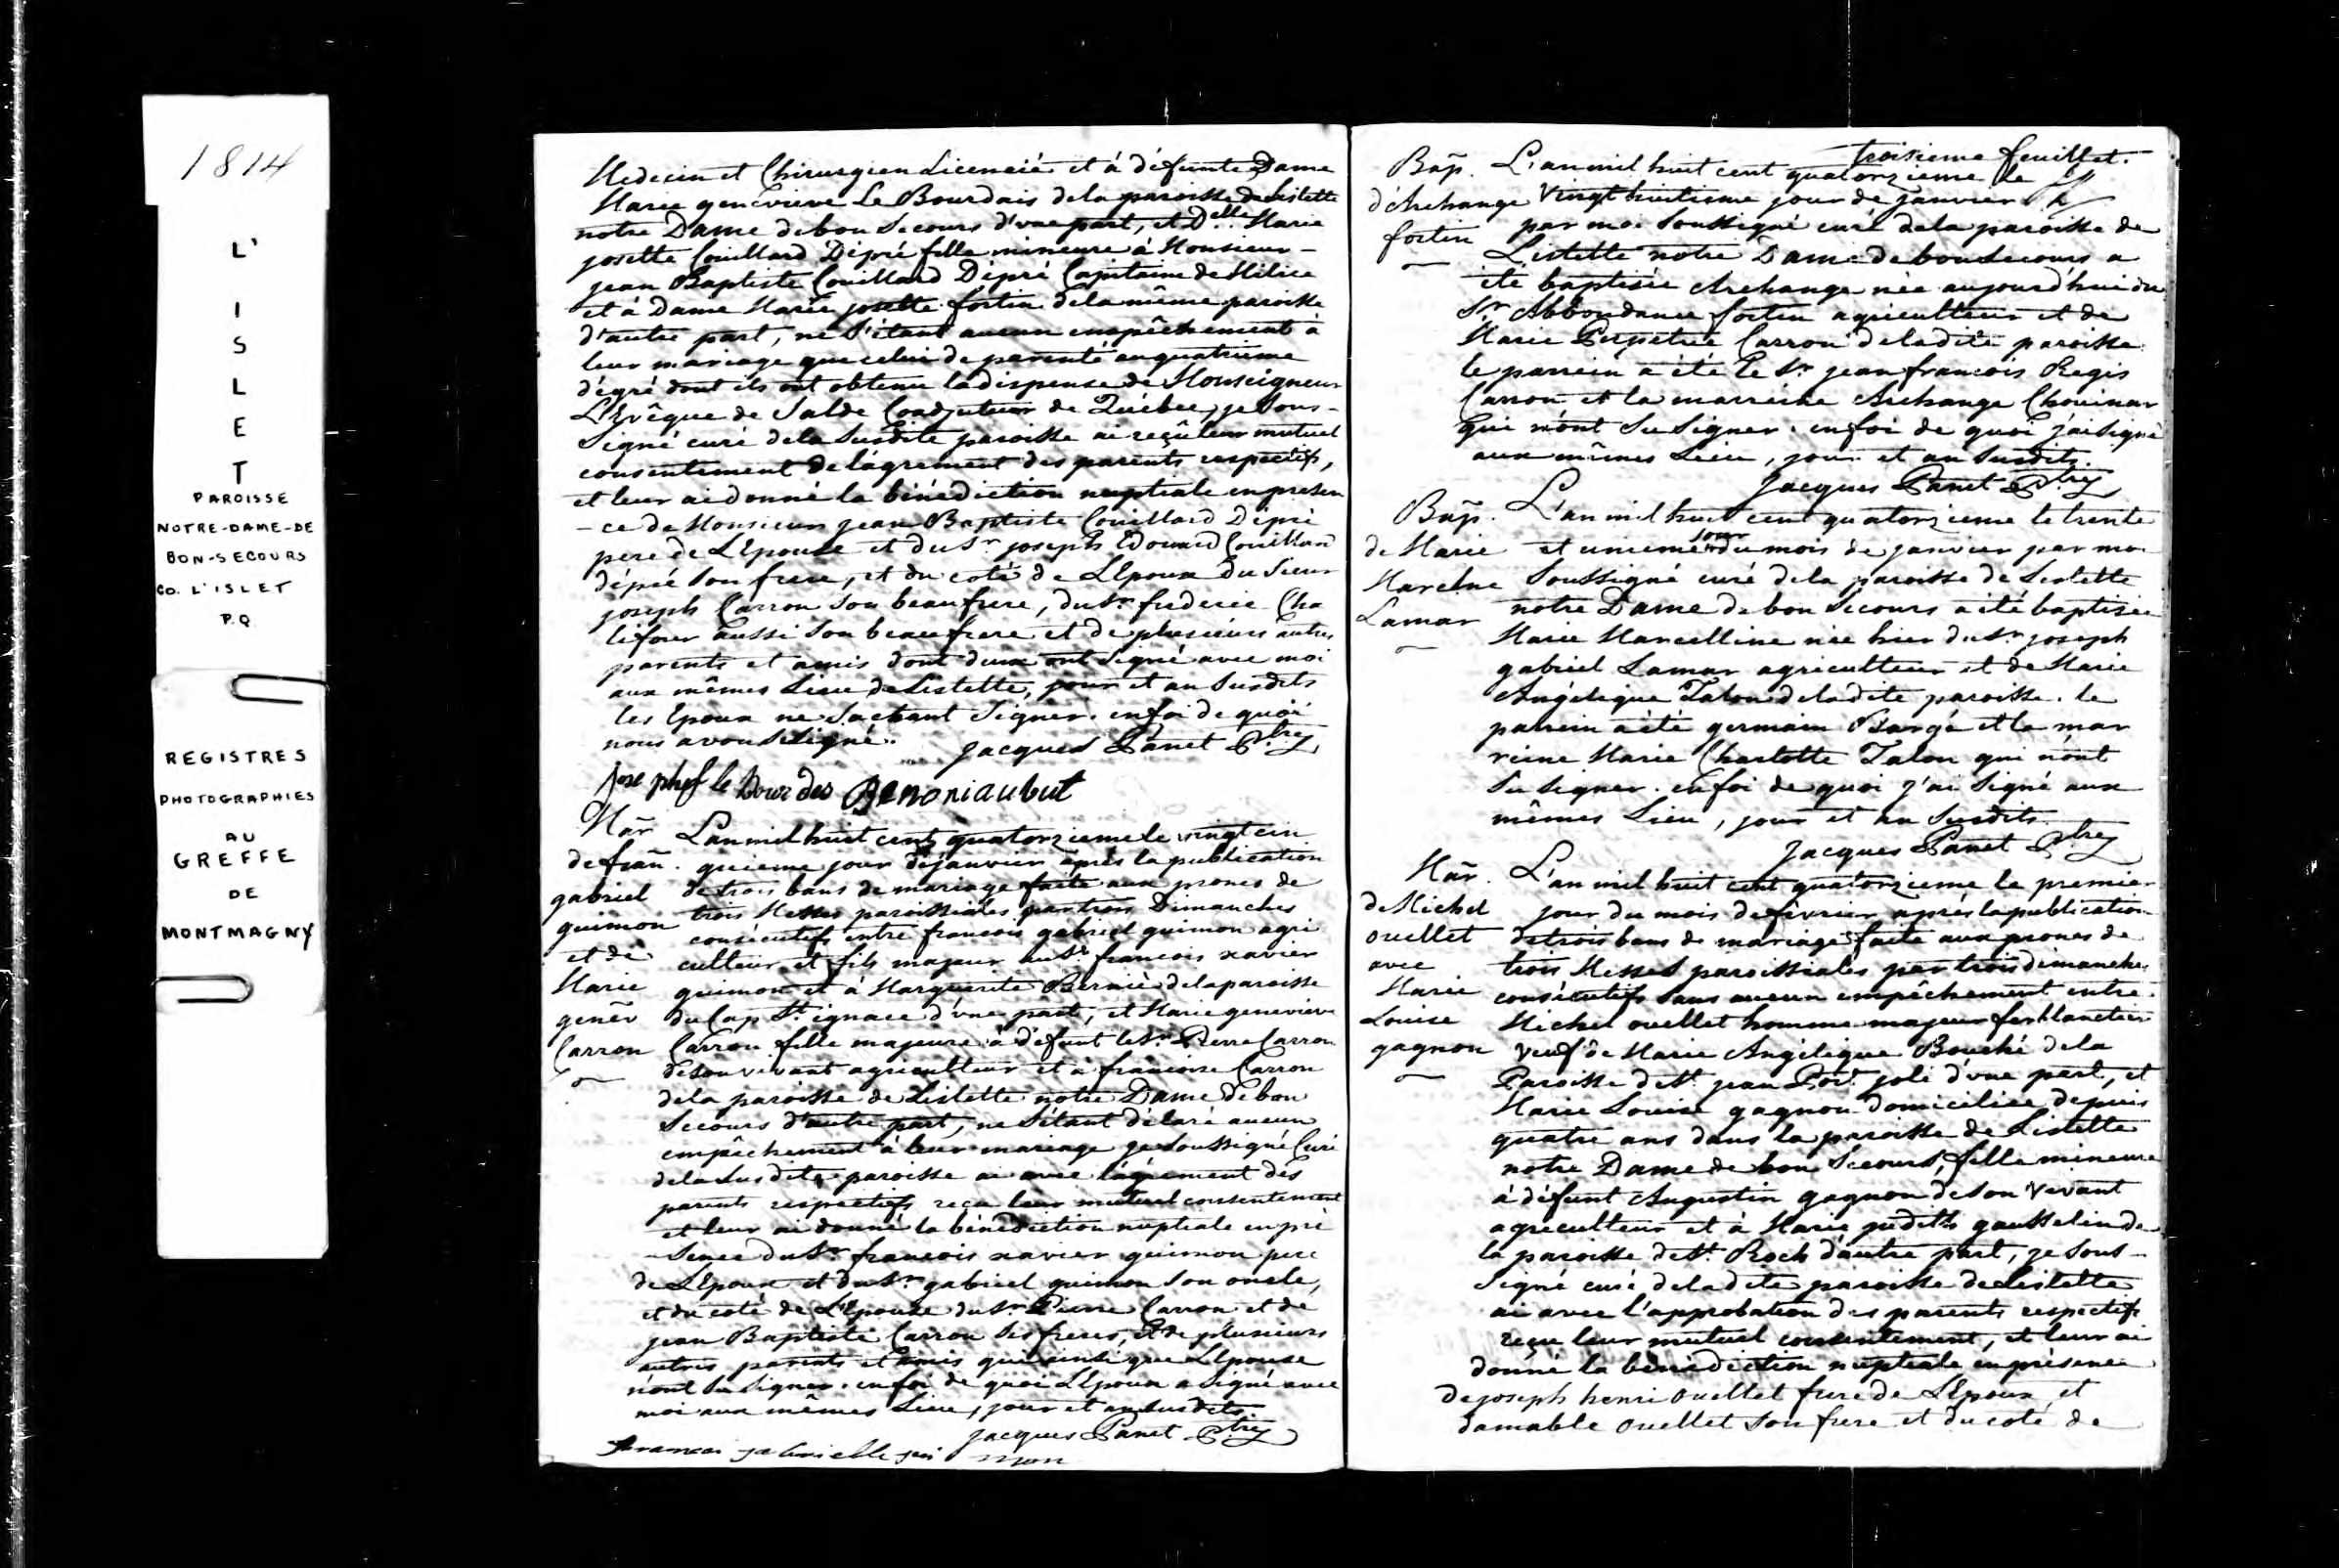 1814
L'
I
S
L
E
T
PAROISSE
NOTRE-DAME-DE
BON-SECOURS
CO. L'ISLET
P.Q.
REGISTRES
PHOTOGRAPHIES
AU
GREFFE
DE
MONTMAGNY
Medecin et Chirurgien Licencié et à défunte Dame
Marie genevieve Le Bourdais dela paroisse de Lislette
notre Dame de bon Secours d'une part, et Delle Marie
josette Couillard Dépré fille mineure à Monsieur
jean Baptiste Couillard Dépré Capitaine de Milice
et à Dame Marie josette fortin dela même paroisse
d'autre part, ne s'étant aucun empêchement à
leur mariage que celui de parenté au quatrieme
dégré dont ils ont obtenu la dispense de Monseigneur
L'Evêque de Salde Coadjuteur de Québec, je sous-
Signé curé dela susdite paroisse ai reçû leur mutuel
consentement de l'agrement des parents respectifs,
et leur ai donné la bénédiction nuptiale en presen
-ce de Monsieur jean Baptiste Couillard Dépré
pere de L'Epouse et du Sr joseph Edouard Couillard
dépré son frere, et du coté de L'Epoux du Sieur
joseph Carron son beaufrere, du Sr frederic Cha
lifour aussi son beaufrere et de plusieurs autres
parents et amis dont deux ont signé avec moi
aux mêmes Lieu de Lislette, jour et an susdits
les Epoux ne sachant signer. en foi de quoi
nous avons signé. jacques Panet Ptre
Joseph le Bourdes Benoni aubut
Mar
de fran.
gabriel
guimon
et de
Marie
genev
Carron
L'an mil huit cent quatorzieme le vingt cin
quieme jour de janvier après la publication
de trois bans de mariage faite aux prones de
trois Messes paroissiales par trois Dimanches
consécutifs entre francois gabriel guimon agri
culteur et fils majeur au Sr francois xavier
guimon et à Marguerite Bernié dela paroisse
du Cap St ignace d'une part, et Marie genevieve
Carron fille majeure à défunt le Sr Pierre Carron
de son vivant agriculteur et à francoise Carron
dela paroisse de Lislette notre Dame de bon
Secours d'autre part, ne s'étant déclaré aucun
empêchement à leur mariage je soussigné Curé
dela susdite paroisse ai avec l'agrement des
parents respectifs reçu leur mutuel consentement
et leur ai donné la bénédiction nuptiale en pré
-sence du Sr francois xavier guimon pere
de L'Epoux et du Sr gabriel guimon son oncle,
et du coté de L'Epouse du Sr Pierre Carron et de
jean Baptiste Carron ses freres, et de plusieurs
autres parents et amis qui ainsi que L'Epouse
n'ont su signer. en foi de quoi L'Epoux a signé avec
moi aux mêmes Lieu, jour et an susdits.
jacques Panet Ptre
francoi gabrielle gui mon
troisieme feuillet.
Bap.
d'Archange
fortin
L'an mil huit cent quatorzieme le
vingt huitieme jour de janvier
par moi soussigné curé dela paroisse de
Lislette notre Dame de bon Secours a
été baptisée Archange née aujourd'hui du
Sr Abbondance fortin agriculteur et de
Marie Perpétue Carron de ladite paroisse
le parrein a été le Sr jean francois Regis
Carron et la marreine Archange Chouinar
qui n'ont su signer. en foi de quoi j'ai signé
aux mêmes Lieu, jour et an susdits.
jacques Panet Ptre
Bap.
de Marie
Marclne
Lamar
L'an mil huit cent quatorzieme le trente
et unieme jour du mois de janvier par moi
soussigné curé dela paroisse de Lislette
notre Dame de bon Secours a été baptisée
Marie Marcelline née hier du Sr joseph
gabriel Lamar agriculteur et de Marie
Angélique Talon deladite paroisse. le
parrein a été germain Bargé et la mar
reine Marie Charlotte Talon qui n'ont
su signer. en foi de quoi j'ai signé aux
mêmes Lieu, jour et an susdits.
jacques Panet Ptre
Mar.
de Michel
ouellet
avec
Marie
Louise
gagnon
L'an mil huit cent quatorzieme le premier
jour du mois de février après la publication
de trois bans de mariage faite aux prones de
trois Messes paroissiales par trois dimanches
consécutifs sans aucun empêchement entre
Michel ouellet homme majeur ferblanctier
veuf de Marie Angélique Bouché de la
Paroisse de St jean Port joli d'une part, et
Marie Louise gagnon domiciliée depuis
quatre ans dans la paroisse de Lislette
notre Dame de bon Secours, fille mineure
à défunt Augustin gagnon de son vivant
agriculteur et à Marie judith gausselin de
la paroisse de St Roch d'autre part, je sous-
signé curé dela dite paroisse de Lislette
ai avec l'approbation des parents respectifs
reçu leur mutuel consentement, et leur ai
donné la bénédiction nuptiale en présence
de joseph henri ouellet frere de L'Epoux et
damable ouellet son frere et du coté de